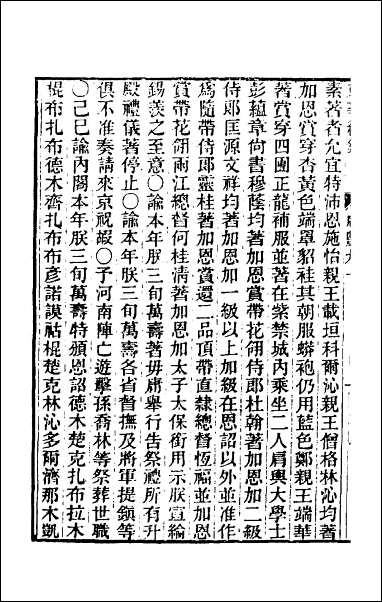 素著者允宜特沛恩施怡親王載垣科爾沁親王僧格林沁均著
加恩賞穿杏黃色端罩貂褂其朝服蟒袍仍用藍色鄭親王端華
著賞穿四團正龍補服並著在紫禁城內乘坐二人肩輿大學士
彭蘊章尚書穆蔭均著加恩賞帶花翎侍郎杜翰著加恩加二級
侍郎匡源文祥均著加恩加一級以上加級在恩詔以外並准作
爲隨帶侍郎靈桂著加恩賞還二品頂帶直隸總督恆福並加恩
賞帶花翎兩江總督何桂淸著加恩加太子太保銜用示朕宣綸
錫羨之至意○諭本年朕三旬萬壽著毋庸舉行告祭禮所有升
殿禮儀著停止○諭本年朕三旬萬壽各省督撫及將軍提鎭等
俱不准奏請來京祝嘏○予河南陣亡遊擊孫喬林等祭葬世職
○己巳諭內閣本年朕三旬萬壽特頒恩詔德木楚克扎布拉木
棍布扎布德木齊扎布布彥諾謨祜棍楚克林沁多爾濟那木凱